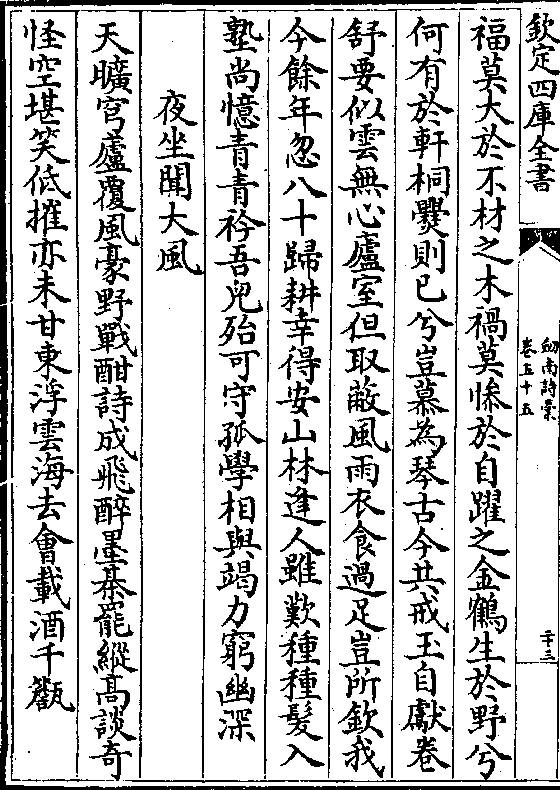 欽定四庫全書
劒南詩稾
卷五十五
二十三
福莫大於不材之木禍莫慘於自躍之金鶴生於野兮
何有於軒桐爨則已兮豈慕為琴古今共戒玉自獻卷
舒要似雲無心廬室但取蔽風雨衣食過足豈所欽我
今餘年忽八十歸耕幸得安山林逢人雖歎種種髮入
塾尚憶青青衿吾兒殆可守孤學相與竭力窮幽深
夜坐聞大風
天曠穹廬覆風豪野戰酣詩成飛醉墨棊罷縱髙談奇
怪空堪笑低摧亦未甘東浮雲海去會載酒千甔